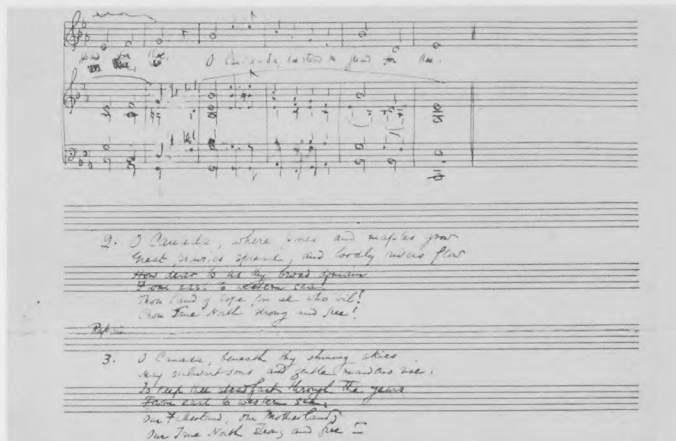 guard for thee. O Canada, we stand on guard for thee.
2. O Canada, where pines and maples grow
Great prairies spread, and lordly rivers flow
How dear to us thy broad domain
From east to western sea!
Thou land of hope for all who toil!
Thou True North strong and free!
Refrain
3. O Canada, beneath thy shining skies
May stalwart sons and gentle maidens rise.
To keep thee steadfast through the years
From east to western sea,
Our Fatherland, our Motherland
Our True North strong and free